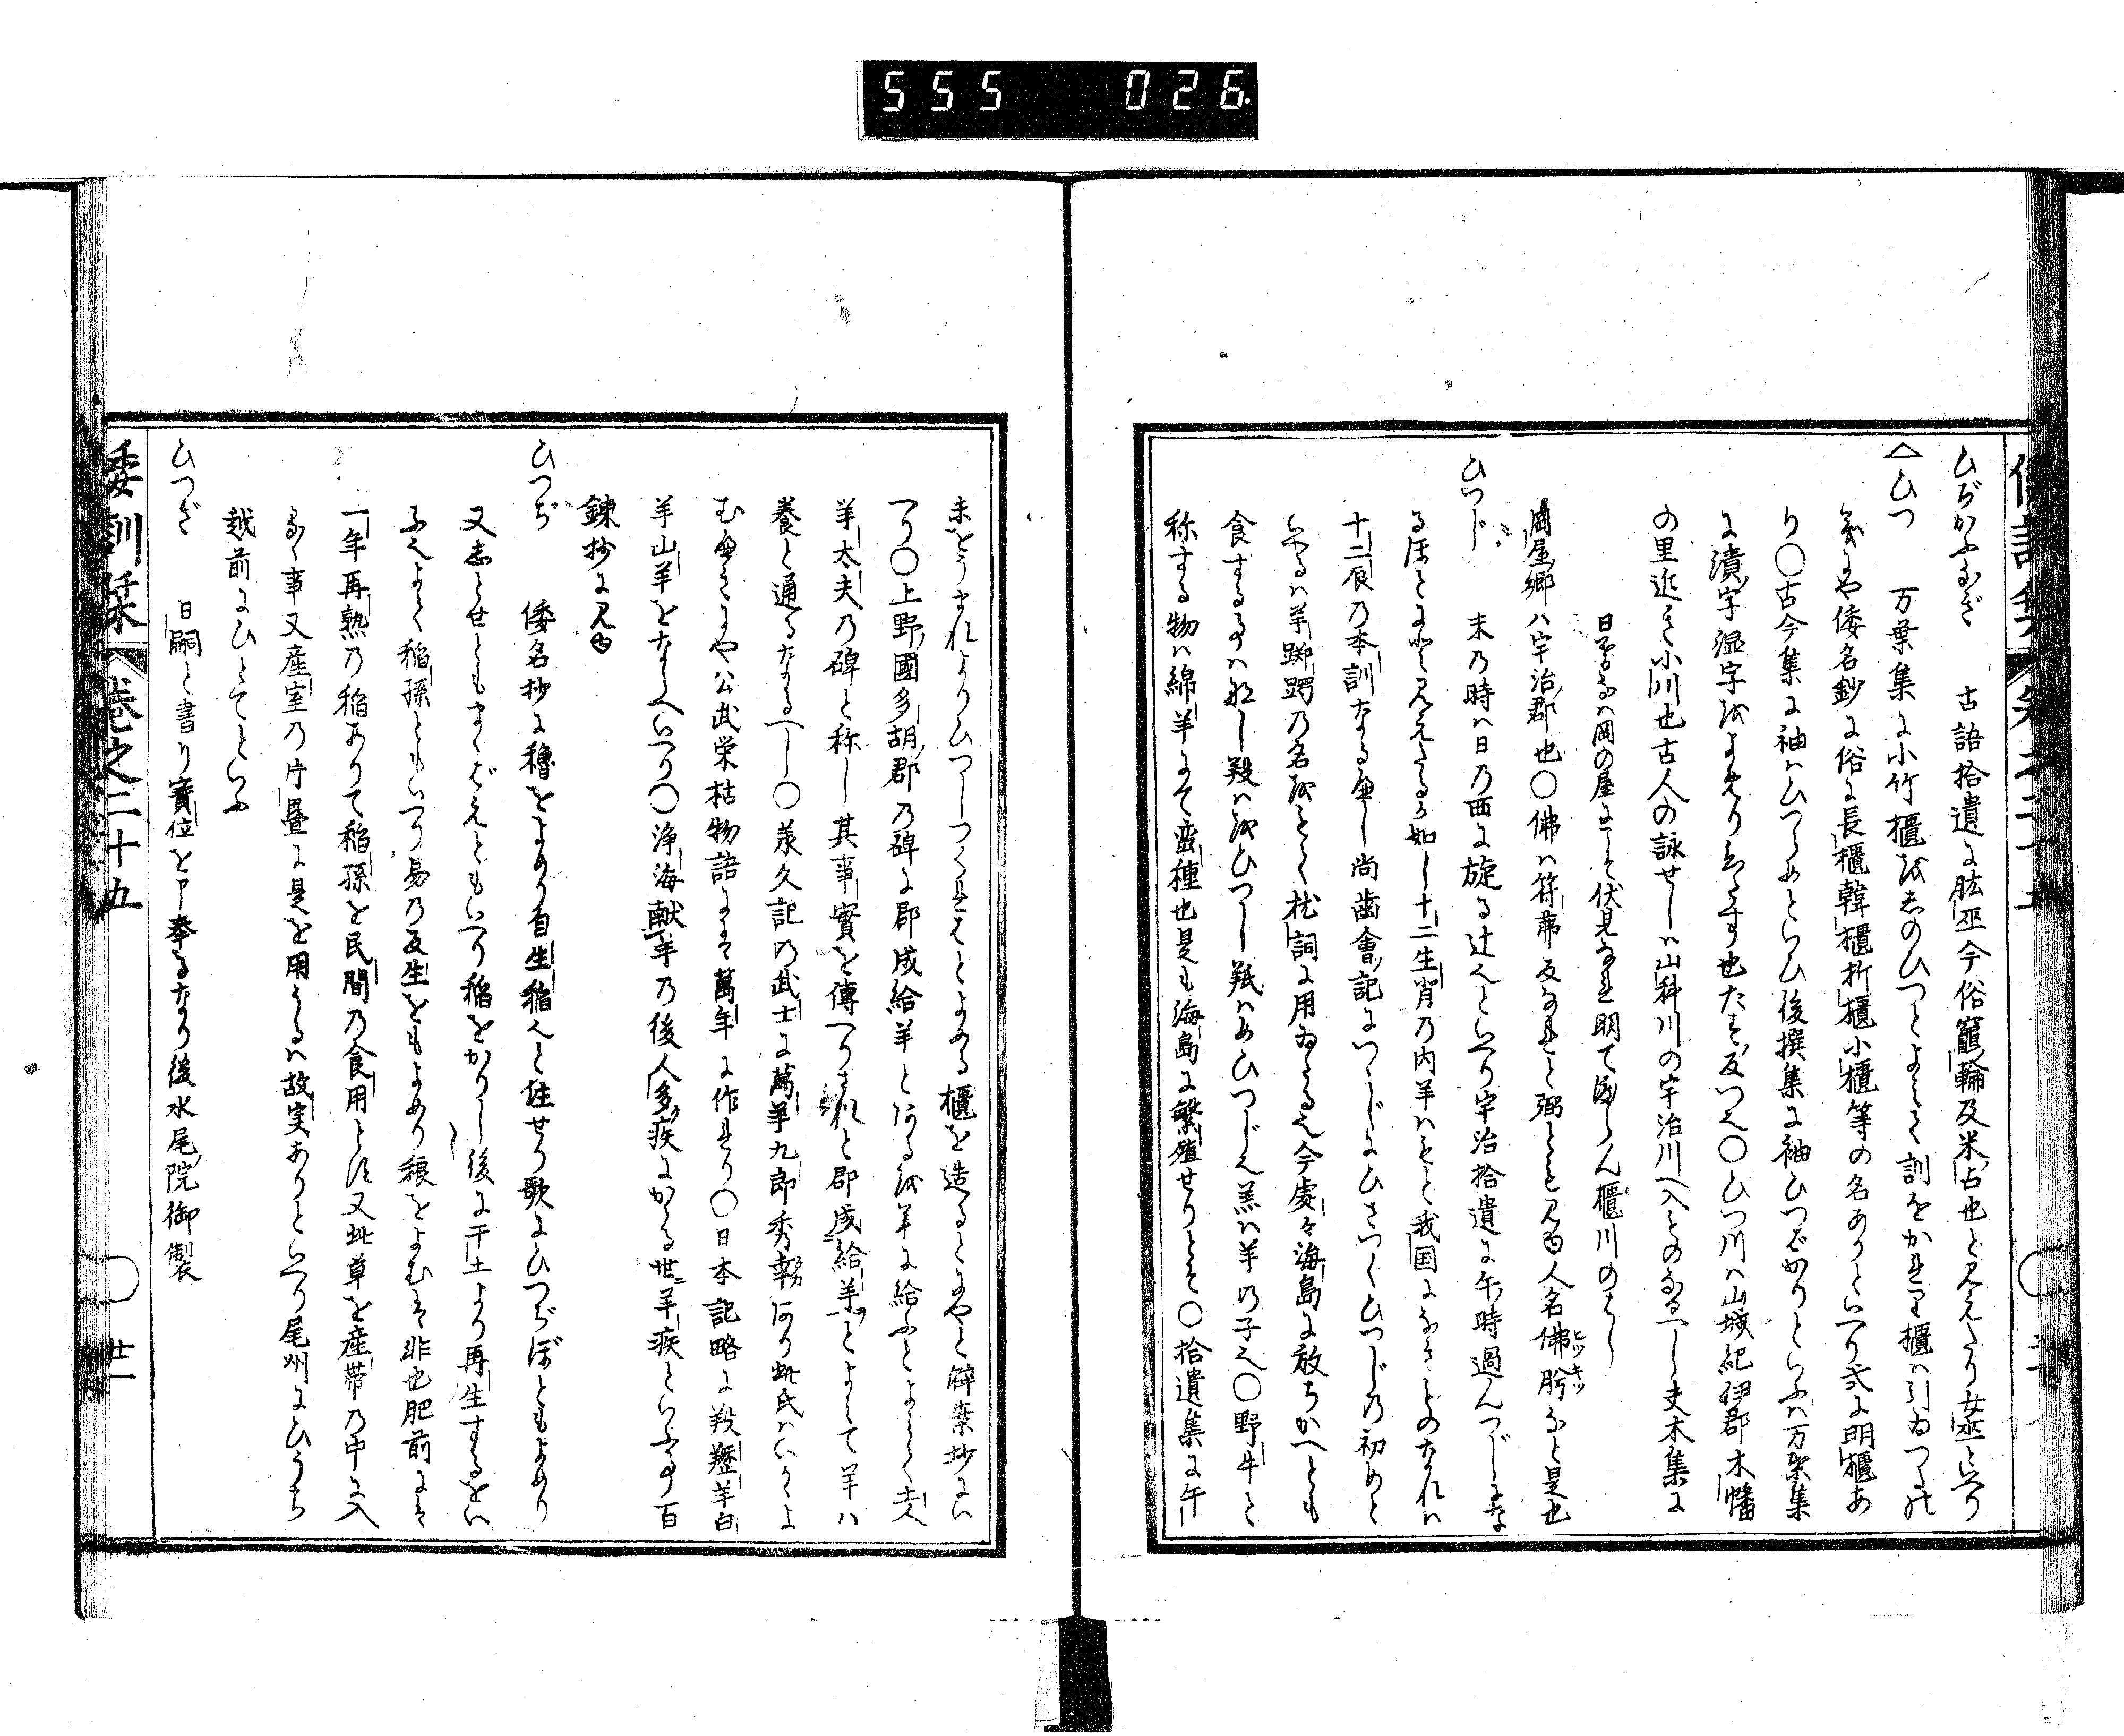 555 026
ひぢかふなぎ 古語拾遺に肱巫今俗竈輪及米占也と見えたり女巫といへり
△ひつ 万葉集に小竹櫃をしのひつとよみて訓をかけり櫃は引ゐつるの
義にや倭名鈔に俗に長櫃韓櫃折櫃小櫃等の名ありといへり式に明櫃あ
り○古今集に袖はひつらめといひ後撰集に袖ひつばかりといふは万葉集
に漬字湿字をよめりひたす也たす反つ也○ひつ川は山城紀伊郡木幡
の里近き小川也古人の詠せしは山科川の宇治川へ入とのなるへし夫木集に
日くるれは岡の屋にこそ伏見なれ明て渡らん櫃川のはし
岡屋郷ハ宇治郡也○佛は符弗反なれと弼とも見ゆ人名佛肸ヒツキツなと是也
ひつじ 未の時は日の西に旋る辻也といへり宇治拾遺に午時過んつじにな
るほとにと見えたるか如し十二生肖の内羊はもと我国になきものなれは
十二辰の本訓なるへし尚歯會記につゝじにひさつくひつじの初めと
いへるは羊躑躅の名をもて枕詞に用ゐたる也今處々海島に放ちかへとも
食するものハ稀し羖はをひつし羝はめひつじ也羔は羊の子也○野牛と
称する物は綿羊にて蛮種也是も海島に繁殖せりとそ○拾遺集に午
未をうまれよりひつしつくれはとよめる櫃を造るとにやと僻案抄にい
へり○上野國多胡郡の碑に郡成給羊とあるを羊に給ふとよみて夫
羊太夫の碑と称し其事實を傳へりされと郡成給羊ヲとよみて羊は
養と通るなるへし○承久記の武士に萬羊九郎秀幹あり此氏はいかによ
むへきにや公武栄枯物語には萬年に作れり○日本記略に羖䍽羊白
羊山羊をならへいへり○浄海献羊の後人多疾にかゝる世ニ羊疾といふ事百
錬抄に見ゆ
ひつぢ 倭名抄に穭をよめり自生稲也と注せり歌にひつぢほともよめり
又志らせともまゝばえともいへり稲をかりし後に干土より再生するをい
ふ也よて稲孫ともいへり易の反生をもよめり稂をよむは非也肥前には
一年再熟の稲ありて稲孫を民間の食用とす又此草を産帯の中に入
るゝ事又産室の片疊に是を用うるは故実ありといへり尾州にひうち
越前にひとてといふ
ひつぎ 日嗣と書り寳位を申奉るなり後水尾院御製
倭訓栞 巻之二十五 ○ 廿一